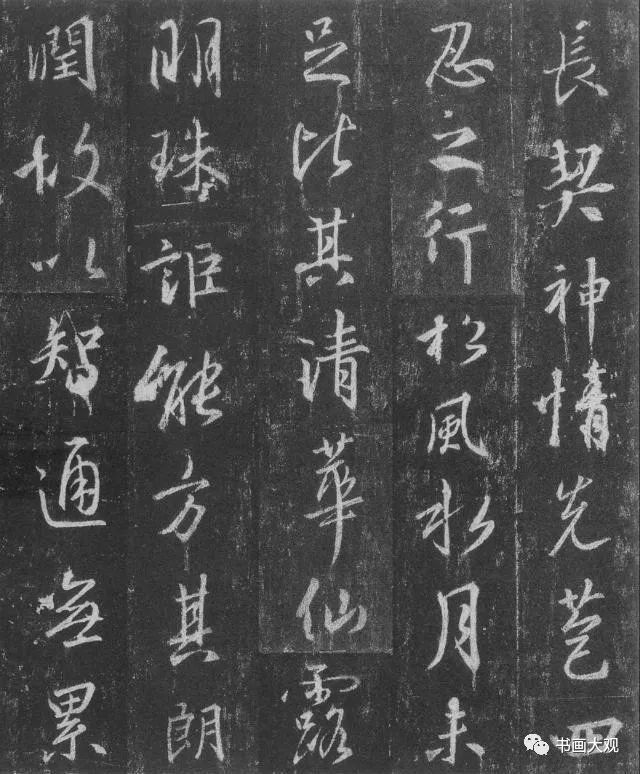 長契神情先苞四
忍之行松風水月未
足比其清華仙露
明珠詎能方其朗
潤故以智通無累
书画大观